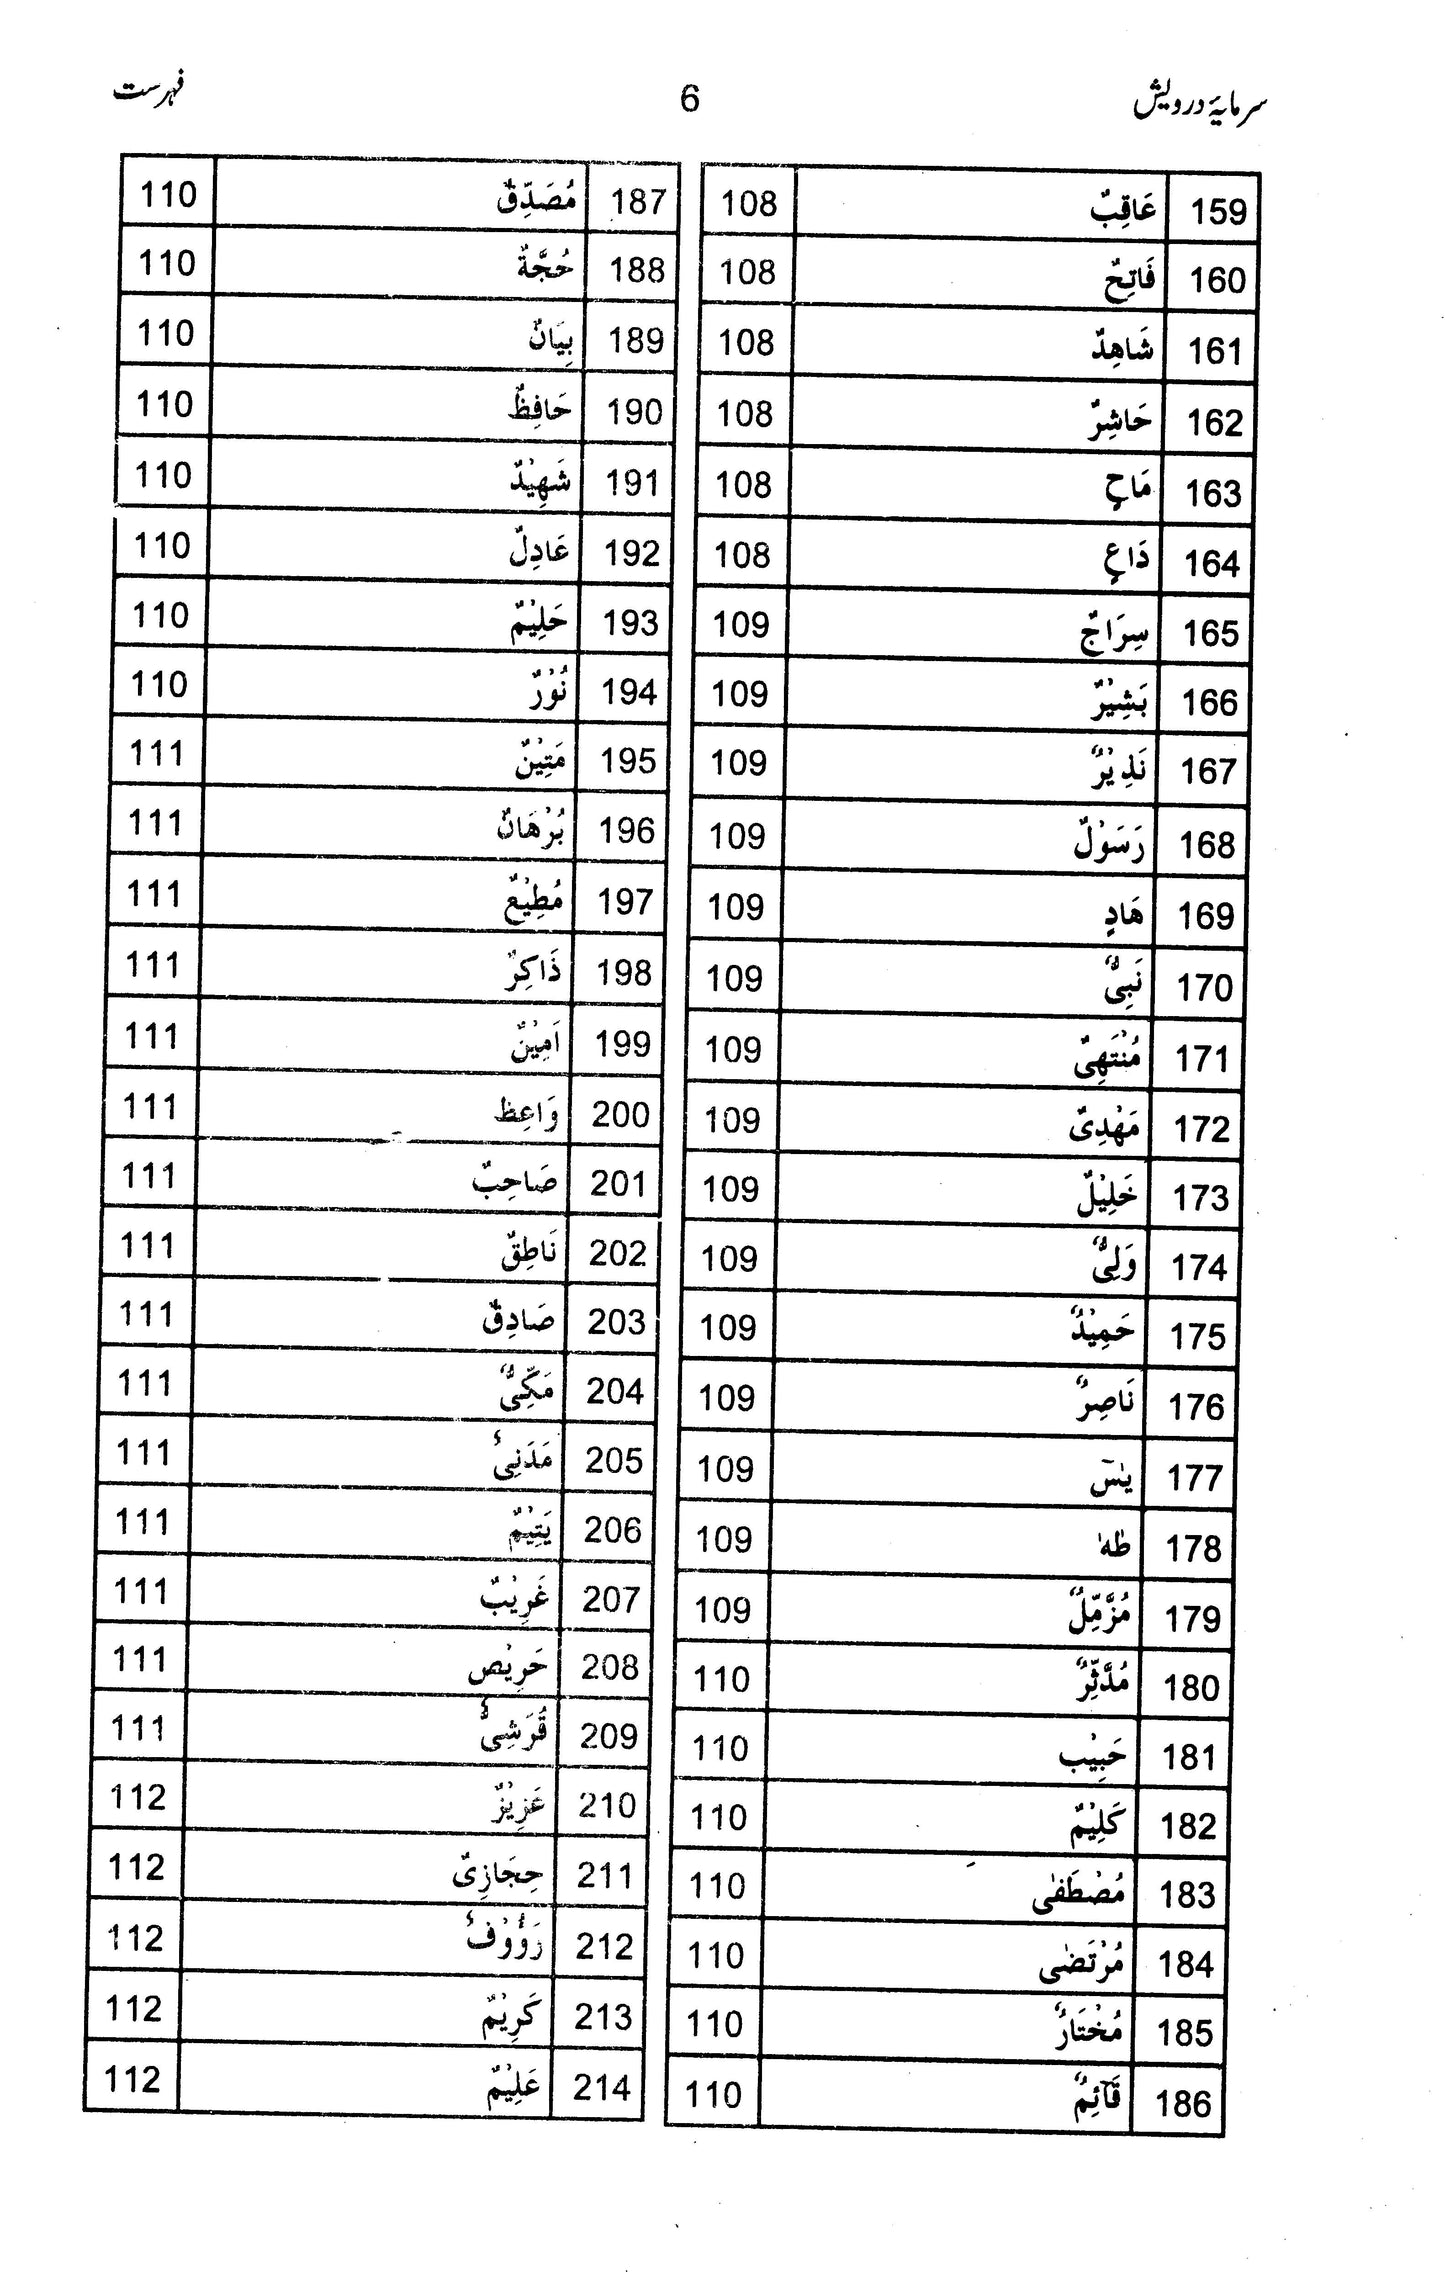 سرمایۂ درویش 6 فہرست
159 عَاقِبٌ 108
160 فَاتِحٌ 108
161 شَاهِدٌ 108
162 حَاشِرٌ 108
163 مَاحٍ 108
164 دَاعٍ 108
165 سِرَاجٌ 109
166 بَشِیْرٌ 109
167 نَذِیْرٌ 109
168 رَسَوْلٌ 109
169 هَادٍ 109
170 نَبِیٌّ 109
171 مُنْتَهِیٌ 109
172 مَهْدِیٌ 109
173 خَلِیْلٌ 109
174 وَلِیٌّ 109
175 حَمِیْدٌ 109
176 نَاصِرٌ 109
177 یٰسٓ 109
178 طٰهٰ 109
179 مُزَّمِّلٌ 109
180 مُدَّثِّرٌ 110
181 حَبِیْب 110
182 کَلِیْمٌ 110
183 مُصْطَفٰی 110
184 مُرْتَضٰی 110
185 مُخْتَارٌ 110
186 قَآئِمٌ 110
187 مُصَدِّقٌ 110
188 حُجَّةٌ 110
189 بِیَانٌ 110
190 حَافِظٌ 110
191 شَهِیْدٌ 110
192 عَادِلٌ 110
193 حَلِیْمٌ 110
194 نُوْرٌ 110
195 مَتِیْنٌ 111
196 بُرْهَانٌ 111
197 مُطِیْعٌ 111
198 ذَاکِرٌ 111
199 اَمِیْنٌ 111
200 وَاعِظ 111
201 صَاحِبٌ 111
202 نَاطِقٌ 111
203 صَادِقٌ 111
204 مَکِّیٌّ 111
205 مَدَنِیٌ 111
206 یَتِیْمٌ 111
207 غَرِیْبٌ 111
208 حَرِیْص 111
209 قُرَشِیٌّ 111
210 عَزِیْزٌ 112
211 حِجَازِیٌ 112
212 رَؤُوْفٌ 112
213 کَرِیْمٌ 112
214 عَلِیْمٌ 112